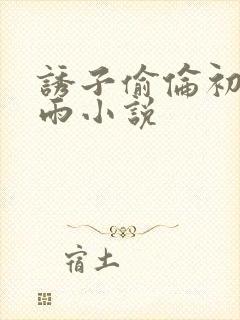 誘子偷倫初
雨小説
宿土